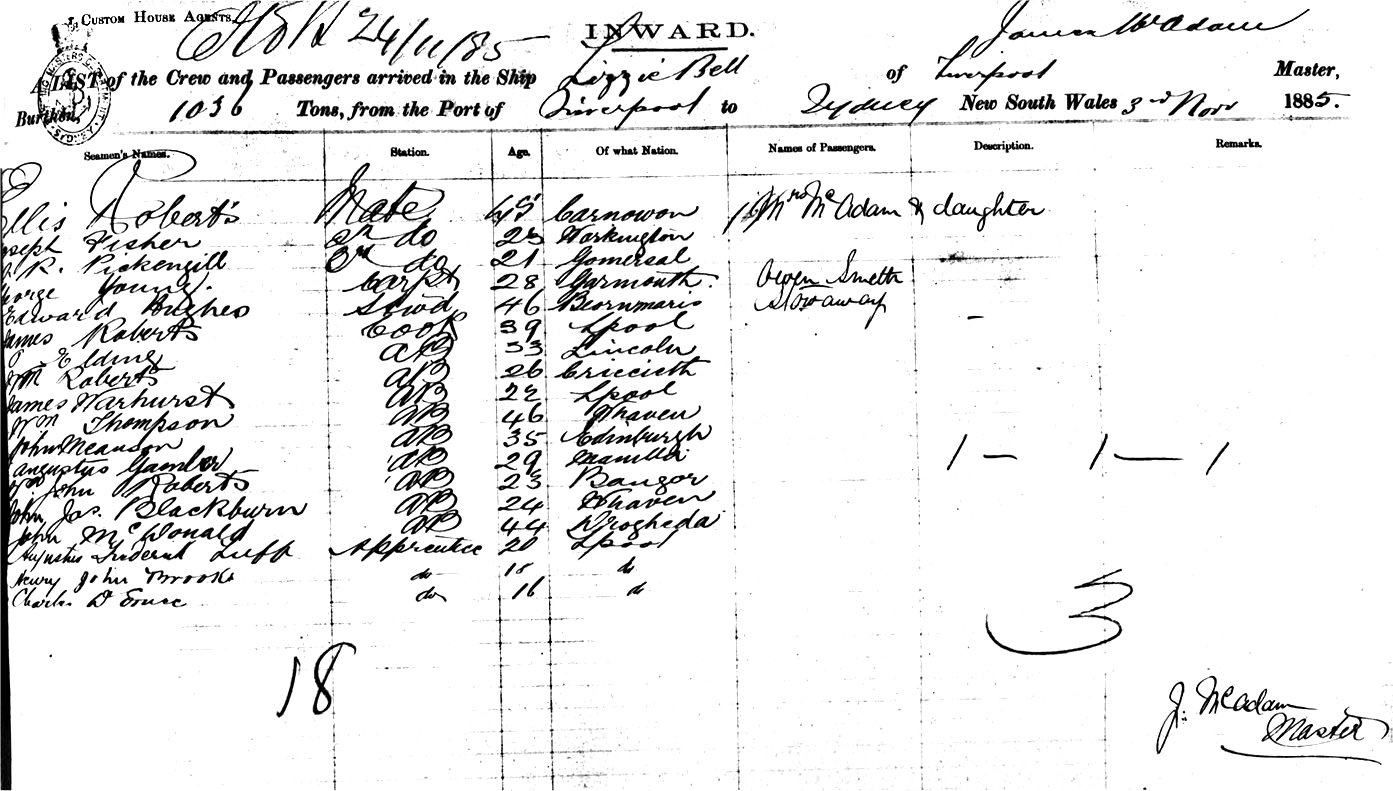 Custom House Agents.
24/11/85
INWARD.
James McAdam
A LIST of the Crew and Passengers arrived in the Ship Lizzie Bell of Liverpool Master,
Burthen, 1036 Tons, from the Port of Liverpool to Sydney New South Wales 3rd Novr 1885.
Seamen's Names. Station. Age. Of what Nation. Names of Passengers. Description. Remarks.
Ellis Roberts Mate 45 Carnovon Mrs McAdam & daughter
oseph Fisher 2n do 23 Workington
R. Pickergill 3rd do 21 Gomersal
eorge Young. Carpt 28 Garmouth. Owen Smeth
Edward Hughes Stewd 46 Beornmaris Stowaway
James Roberts Cook 39 Lpool -
Elding AB 33 Lincoln
Wm Roberts AB 26 Criccieth
James Warhurst AB 22 Lpool
Wm Thompson AB 46 Whaven
John Meanson AB 35 Edinburgh
Augustus Gamber AB 29 Manilla 1 - 1 - 1
Wm John Roberts AB 23 Bangor
John Jas. Blackburn AB 24 Whaven
John McDonald AB 44 Drogheda
Augustus Frederick Luff Apprentice 20 Lpool
Henry John Brooks do 18 do
Charles D do 16 do
3
18
J. McAdam
Master